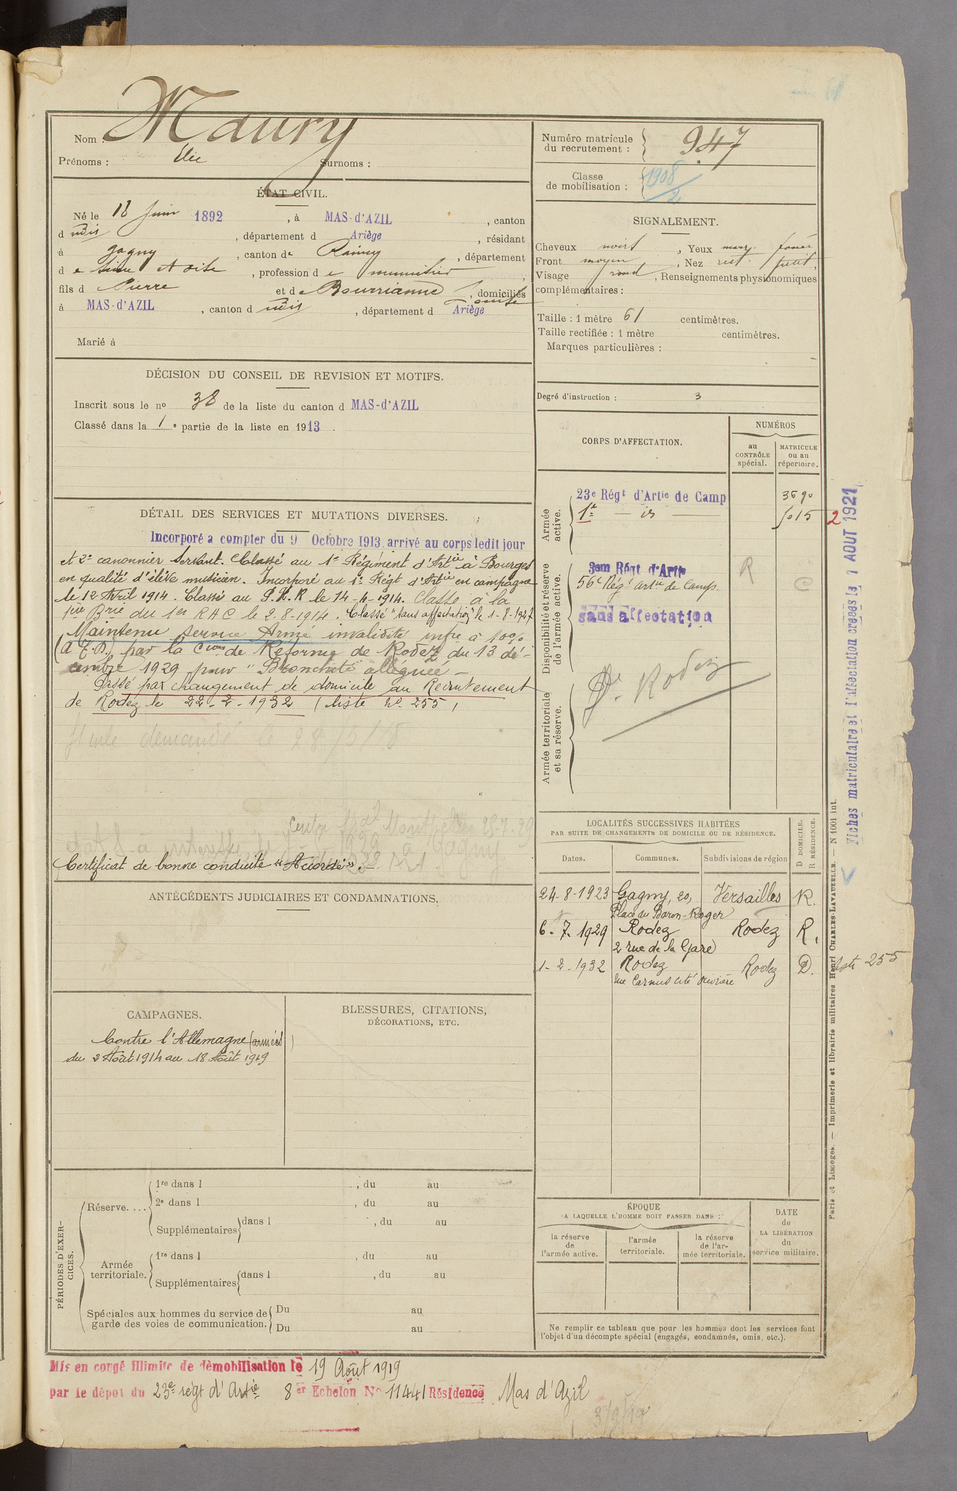 Nom : Maury
Prénoms : Élie Surnoms :
ÉTAT CIVIL.
Né le 18 Juin 1892, à MAS-d'AZIL, canton
d udis, département d Ariège, résidant
à Gagny, canton de Raincy, département
d e Seine et Oise, profession d e menuisier,
fils d Pierre et d e Bourrianne, domiciliés
à MAS-d'AZIL, canton d udis, département d Ariège
Marié à
DÉCISION DU CONSEIL DE REVISION ET MOTIFS.
Inscrit sous le nº 38 de la liste du canton d MAS-d'AZIL
Classé dans la 1e partie de la liste en 1913.
DÉTAIL DES SERVICES ET MUTATIONS DIVERSES.
Incorporé a compter du 9 Octobre 1913, arrivé au corps ledit jour
et 2e canonnier servant. Classé au 1er Régiment d'Artie à Bourges
en qualité d'élève musicien. Incorporé au 1er Régt d'Artie en campagne
le 12 Avril 1914. Classé au P.H.R le 14-4-1914. Classé à la
1ère Brie du 1er RAC le 2.8.1914. Classé "sans affectation" le 1-8-1927
Maintenu Service Armé invalidité infre à 10%
(A.T.D) par la Cion de Réforme de Rodez du 13 dé-
cembre 1929 pour "Bronchite alléguée" -
Passé par changement de domicile au Recrutement
de Rodez le 22-2-1932 (liste Nº 255)
demandé le 28/5/18
Centre Montpellier 28-7-29
Gagny
Certificat de bonne conduite "Accordé".-
ANTÉCÉDENTS JUDICIAIRES ET CONDAMNATIONS.
CAMPAGNES.
Contre l'Allemagne (armées)
du 2 Août 1914 au 18 Août 1919
BLESSURES, CITATIONS,
DÉCORATIONS, ETC.
PÉRIODES D'EXER-
CICES.
Réserve....
1re dans l , du au
2e dans l , du au
Supplémentaires dans l , du au
Armée
territoriale.
1re dans l , du au
Supplémentaires dans l , du au
Spéciales aux hommes du service de
garde des voies de communication.
Du au
Du au
Numéro matricule
du recrutement : 947
Classe
de mobilisation : 1908/2
SIGNALEMENT.
Cheveux noirs, Yeux mar. foncé
Front moyen, Nez rect. petit,
Visage rond, Renseignements physionomiques
complémentaires :
Taille : 1 mètre 61 centimètres.
Taille rectifiée : 1 mètre centimètres.
Marques particulières :
Degré d'instruction : 3
CORPS D'AFFECTATION.
NUMÉROS
au
CONTRÔLE
spécial.
MATRICULE
ou au
répertoire.
Armée
active.
23e Régt d'Artie de Camp 3690
1er — is — 5015 2
Disponibilité et réserve
de l'armée active.
3em Régt d'Artie
56e Rég' artie de Camp.
sans affectation
R
C
Armée territoriale
et sa réserve.
Dt Rodez
LOCALITÉS SUCCESSIVES HABITÉES
PAR SUITE DE CHANGEMENTS DE DOMICILE OU DE RÉSIDENCE.
Dates. Communes. Subdivisions de région
D DOMICILE.
R RÉSIDENCE.
24-8-1923 Gagny, 20, Versailles R.
Place du Baron-Roger
6-7-1929 Rodez Rodez R.
2 rue de la Gare
1-2-1932 Rodez Rodez D. Liste 255
Rue Carnus cité ouvrière
ÉPOQUE
A LAQUELLE L'HOMME DOIT PASSER DANS :
la réserve
de
l'armée active.
l'armée
territoriale.
la réserve
de l'ar-
mée territoriale.
DATE
de
LA LIBÉRATION
du
service militaire.
Ne remplir ce tableau que pour les hommes dont les services font
l'objet d'un décompte spécial (engagés, condamnés, omis, etc.).
Fiches matriculaire et d'affectation créées le 1 AOUT 1921
Paris et Limoges. — Imprimerie et librairie militaires Henri CHARLES-LAVAUZELLE. — N 1001 int.
Mis en congé illimité de démobilisation le 19 Août 1919
par le dépot du 23e régt d'Artie 8er Echelon Nº 11441 Résidence Mas d'Azil